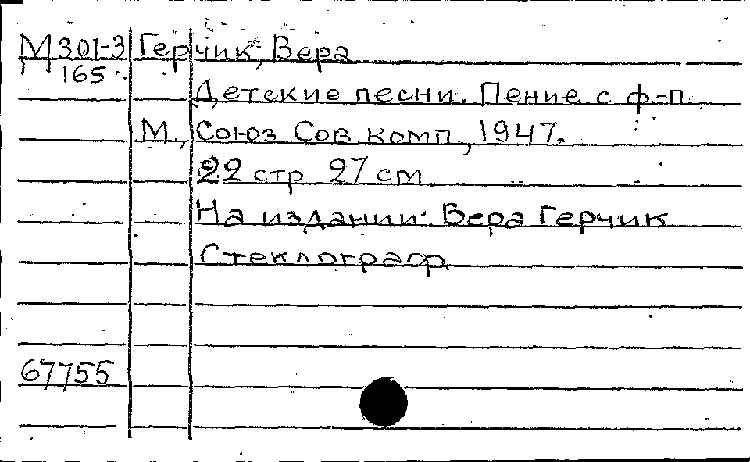 М301-3 Герчик, Вера
165
Детские песни. Пение с ф-п.
М., Союз Сов комп, 1947.
22 стр 27 см
На издании: Вера Герчик
Стеклограф.
67755